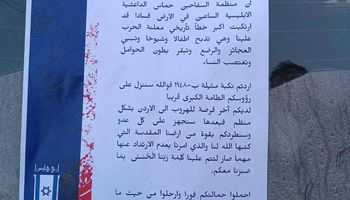 أن منظمة السفاحين حماس الداعشية
الابليسية الساعين في الارض فسادا قد
ارتكبت اكبر خطأ تأريخي معلنة الحرب
علينا وهي تذبح اطفالا وشيوخا وتسبي
العجائز والرضع وتبقر بطون الحوامل
وتغتصب النساء.
اردتم نكبة مثيلة ب-١٩٤٨ فوالله سننزل على
رؤوسكم الطامة الكبرى قريبا
لديكم آخر فرصة للهروب الى الاردن بشكل
منظم فبعدها سنجهز على كل عدو
وسنطردكم بقوة من ارضنا المقدسة التي
كتبها الله لنا والذي امرنا بعدم الارتداد عنها
مهما صار لتتم علينا كلمة ربنا الحسنى بما
صبرنا معكم.
احملوا حمالتكم فورا وارحلوا من حيث ما